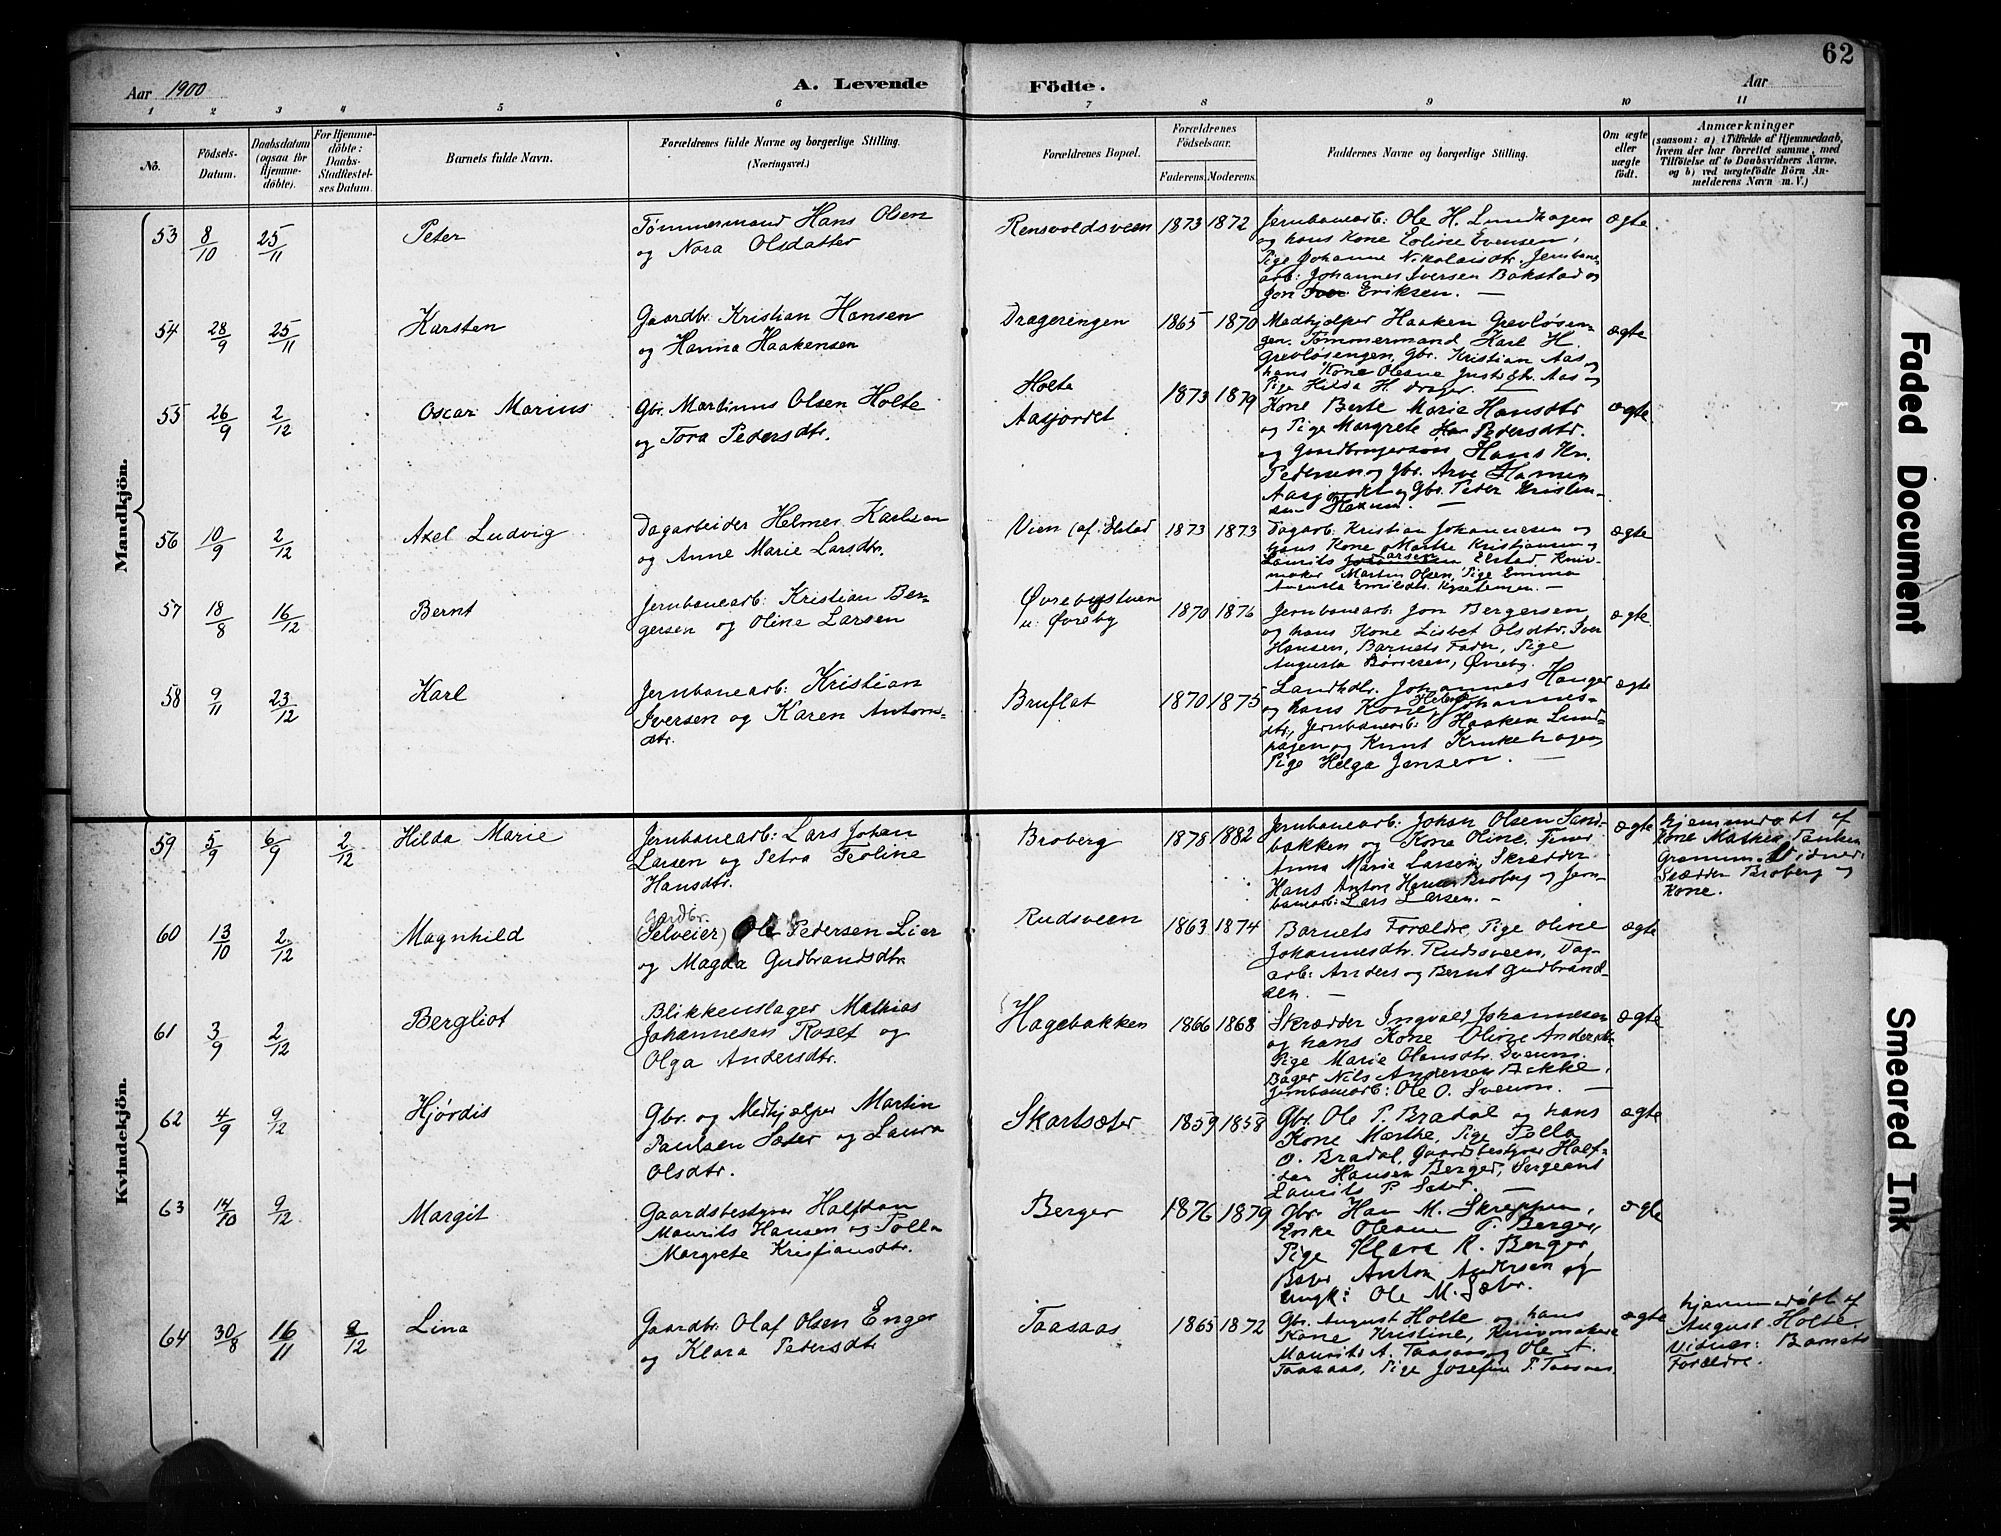 62
Aar 1900
A. Levende
Födte.
Aar
1 2 3 4 5 6 7 8 9 10 11
No.
Födsels-Datum.
Daabsdatum (ogsaa for Hjemmedöbte).
For Hjemmedöbte: Daabs-Stadfæstelses Datum.
Barnets fulde Navn.
Forældrenes fulde Navne og borgerlige Stilling.
(Næringsvei.)
Forældrenes Bopæl.
Forældrenes Födselsaar.
Faderens. Moderens.
Faddernes Navne og borgerlige Stilling.
Om ægte eller uægte födt.
Anmærkninger
(saasom: a) i Tilfælde af Hjemmedaab, hvem der har forrettet samme, med Tilföielse af to Daabsvidners Navne, og b) ved uægtefödte Börn Anmelderens Navn m. V.)
Mandkjön.
53 8/10 25/11 Peter
Tømmermand Hans Olsen
og Nora Olsdatter
Rensvoldsveen 1873 1872
Jernbanearb: Ole H. Lundhagen
og hans Kone Eline Evensen,
Pige Johanne Nikolaisdtr. Jernbane
arb: Johannes Iversen Bakstad og
Jon Eriksen. —
ægte
54 28/9 25/11 Karsten
Gaardbr. Kristian Hansen
og Hanna Haakensen
Drageringen 1865 1870
Medhjelper Haaken Grevløsen-
gen. Tømmermand Karl H.
Grevløsengen, Gbr. Kristian Aas og
hans Kone Oleane Aas og
Pige Hilda H. Drager.
ægte
55 26/9 2/12 Oscar Marius
Gbr. Martinus Olsen Holte
og Tora Pedersdtr.
Holte
Aasjordet 1873 1879
Kone Berte Marie Hansdtr
og Pige Margrete Pedersdtr.
og Gaardbrugersøn Hans Kr.
Pedersen og Gbr. Arve Hansen
Aasjordet og Gbr. Peder Kristen-
sen
ægte
56 10/9 2/12 Axel Ludvig
Dagarbeider Helmer Karlsen
og Anne Marie Larsdtr.
Vien (af: Elstad 1873 1873
Dagarb. Kristian Johannesen og
hans Kone Marthe Kristiansen og
Laurits Larsen Elstad, Kniv-
maker Martin Olsen, Pige Emma
Augusta —
ægte
57 18/8 16/12 Bernt
Jernbanearb: Kristian Ber-
gersen og Oline Larsen
Øvrebystuen
u: Øvreby 1870 1876
Jernbanearb: Jon Bergersen
og hans Kone Lisbet Olsdtr. Iver
Hansen, Barnets Fader, Pige
Augusta Børresen, Øvreby.
ægte
58 9/11 23/12 Karl
Jernbanearb: Kristian
Iversen og Karen Antons-
dtr.
Bruflat 1870 1875
Landhdlr. Johannes Hanger
og hans Kone Helene Johannes-
dtr., Jernbanearb: Haaken Lund-
hagen og Knut Krukehagen,
Pige Helga Jensen. —
ægte
Kvindekjön.
59 5/9 6/9 2/12 Hilda Marie
Jernbanearb: Lars Johan
Larsen og Petra Teoline
Hansdtr.
Broberg 1878 1882
Jernbanearb: Johan Olsen Sand-
bakken og Kone Oline. Frue
Anna Maria Larsen, Skrædder
Hans Anton Hansen Broberg og Jern-
banearb: Lars Larsen. —
ægte
hjemmedøbt af
Kone Mathea
Vidner:
Skrædder Broberg og
Kone.
60 13/10 2/12 Magnhild
Gardbr.
(Selveier) Ole Pedersen Lier
og Magda Gudbrandsdtr.
Rudsveen 1863 1874
Barnets Forældre, Pige Oline
Johannesdtr. Rudsveen, Dag-
arb: Anders og Bernt Gudbrand-
sen. —
ægte
61 3/9 2/12 Bergliot
Blikkenslager Mathias
Johannesen Roset og
Olga Andersdtr.
Hagebakken 1866 1868
Skrædder Ingvald Johannesen
og hans Kone Oline Andersdtr.
Pige Marie Olausdtr. Sveum.
Bager Nils Andersen Bakke,
Jernbanearb: Ole O. Sveum. —
ægte
62 4/9 9/12 Hjørdis
Gbr. og Medhjælper Martin
Paulsen Sæter og Laura
Olsdtr.
Skartsæter 1859 1858
Gbr. Ole P. Bradal og hans
Kone Marthe, Pige Polla
O. Bradal, Gaardsbestyrer Half-
dan Hansen Berger, Sergeant
Laurits P. Sæter. —
ægte
63 14/10 9/12 Margit
Gaardsbestyrer Halfdan
Maurits Hansen og Polla
Margrete Kristiansdtr.
Berger 1876 1879
Gbr. Han M. Skreppen,
Enke Oleane P. Berger,
Pige Klara K. Berger,
Bager Anton Andersen og
Ungk: Ole M. Sæter.
ægte
64 30/8 16/11 9/12 Lina
Gaardbr. Olaf Olsen Enger
og Klara Pedersdtr
Taasaas 1865 1872
Gbr. August Holte og hans
Kone Kristine, Knivmaker
Maurits A. Taasaas og Ole A.
Taasaas, Pige Josefine P. Taasaas.
ægte
hjemmedøbt af
August Holte.
Vidner: Barnets
Forældre.
Faded Document
Smeared Ink